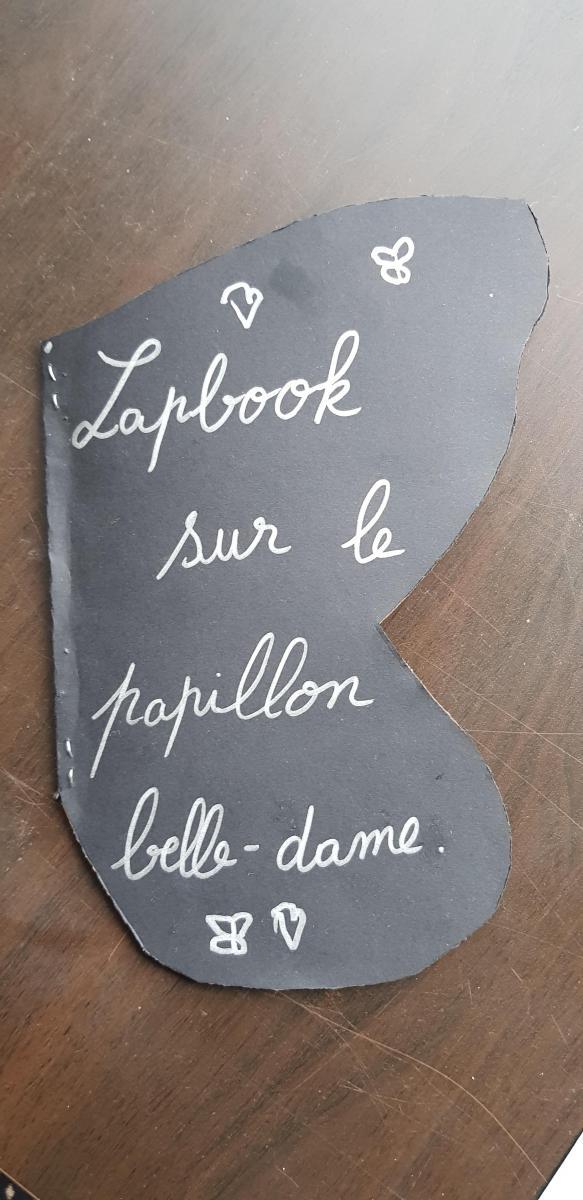 Lapbook
sur le
papillon
belle-dame.